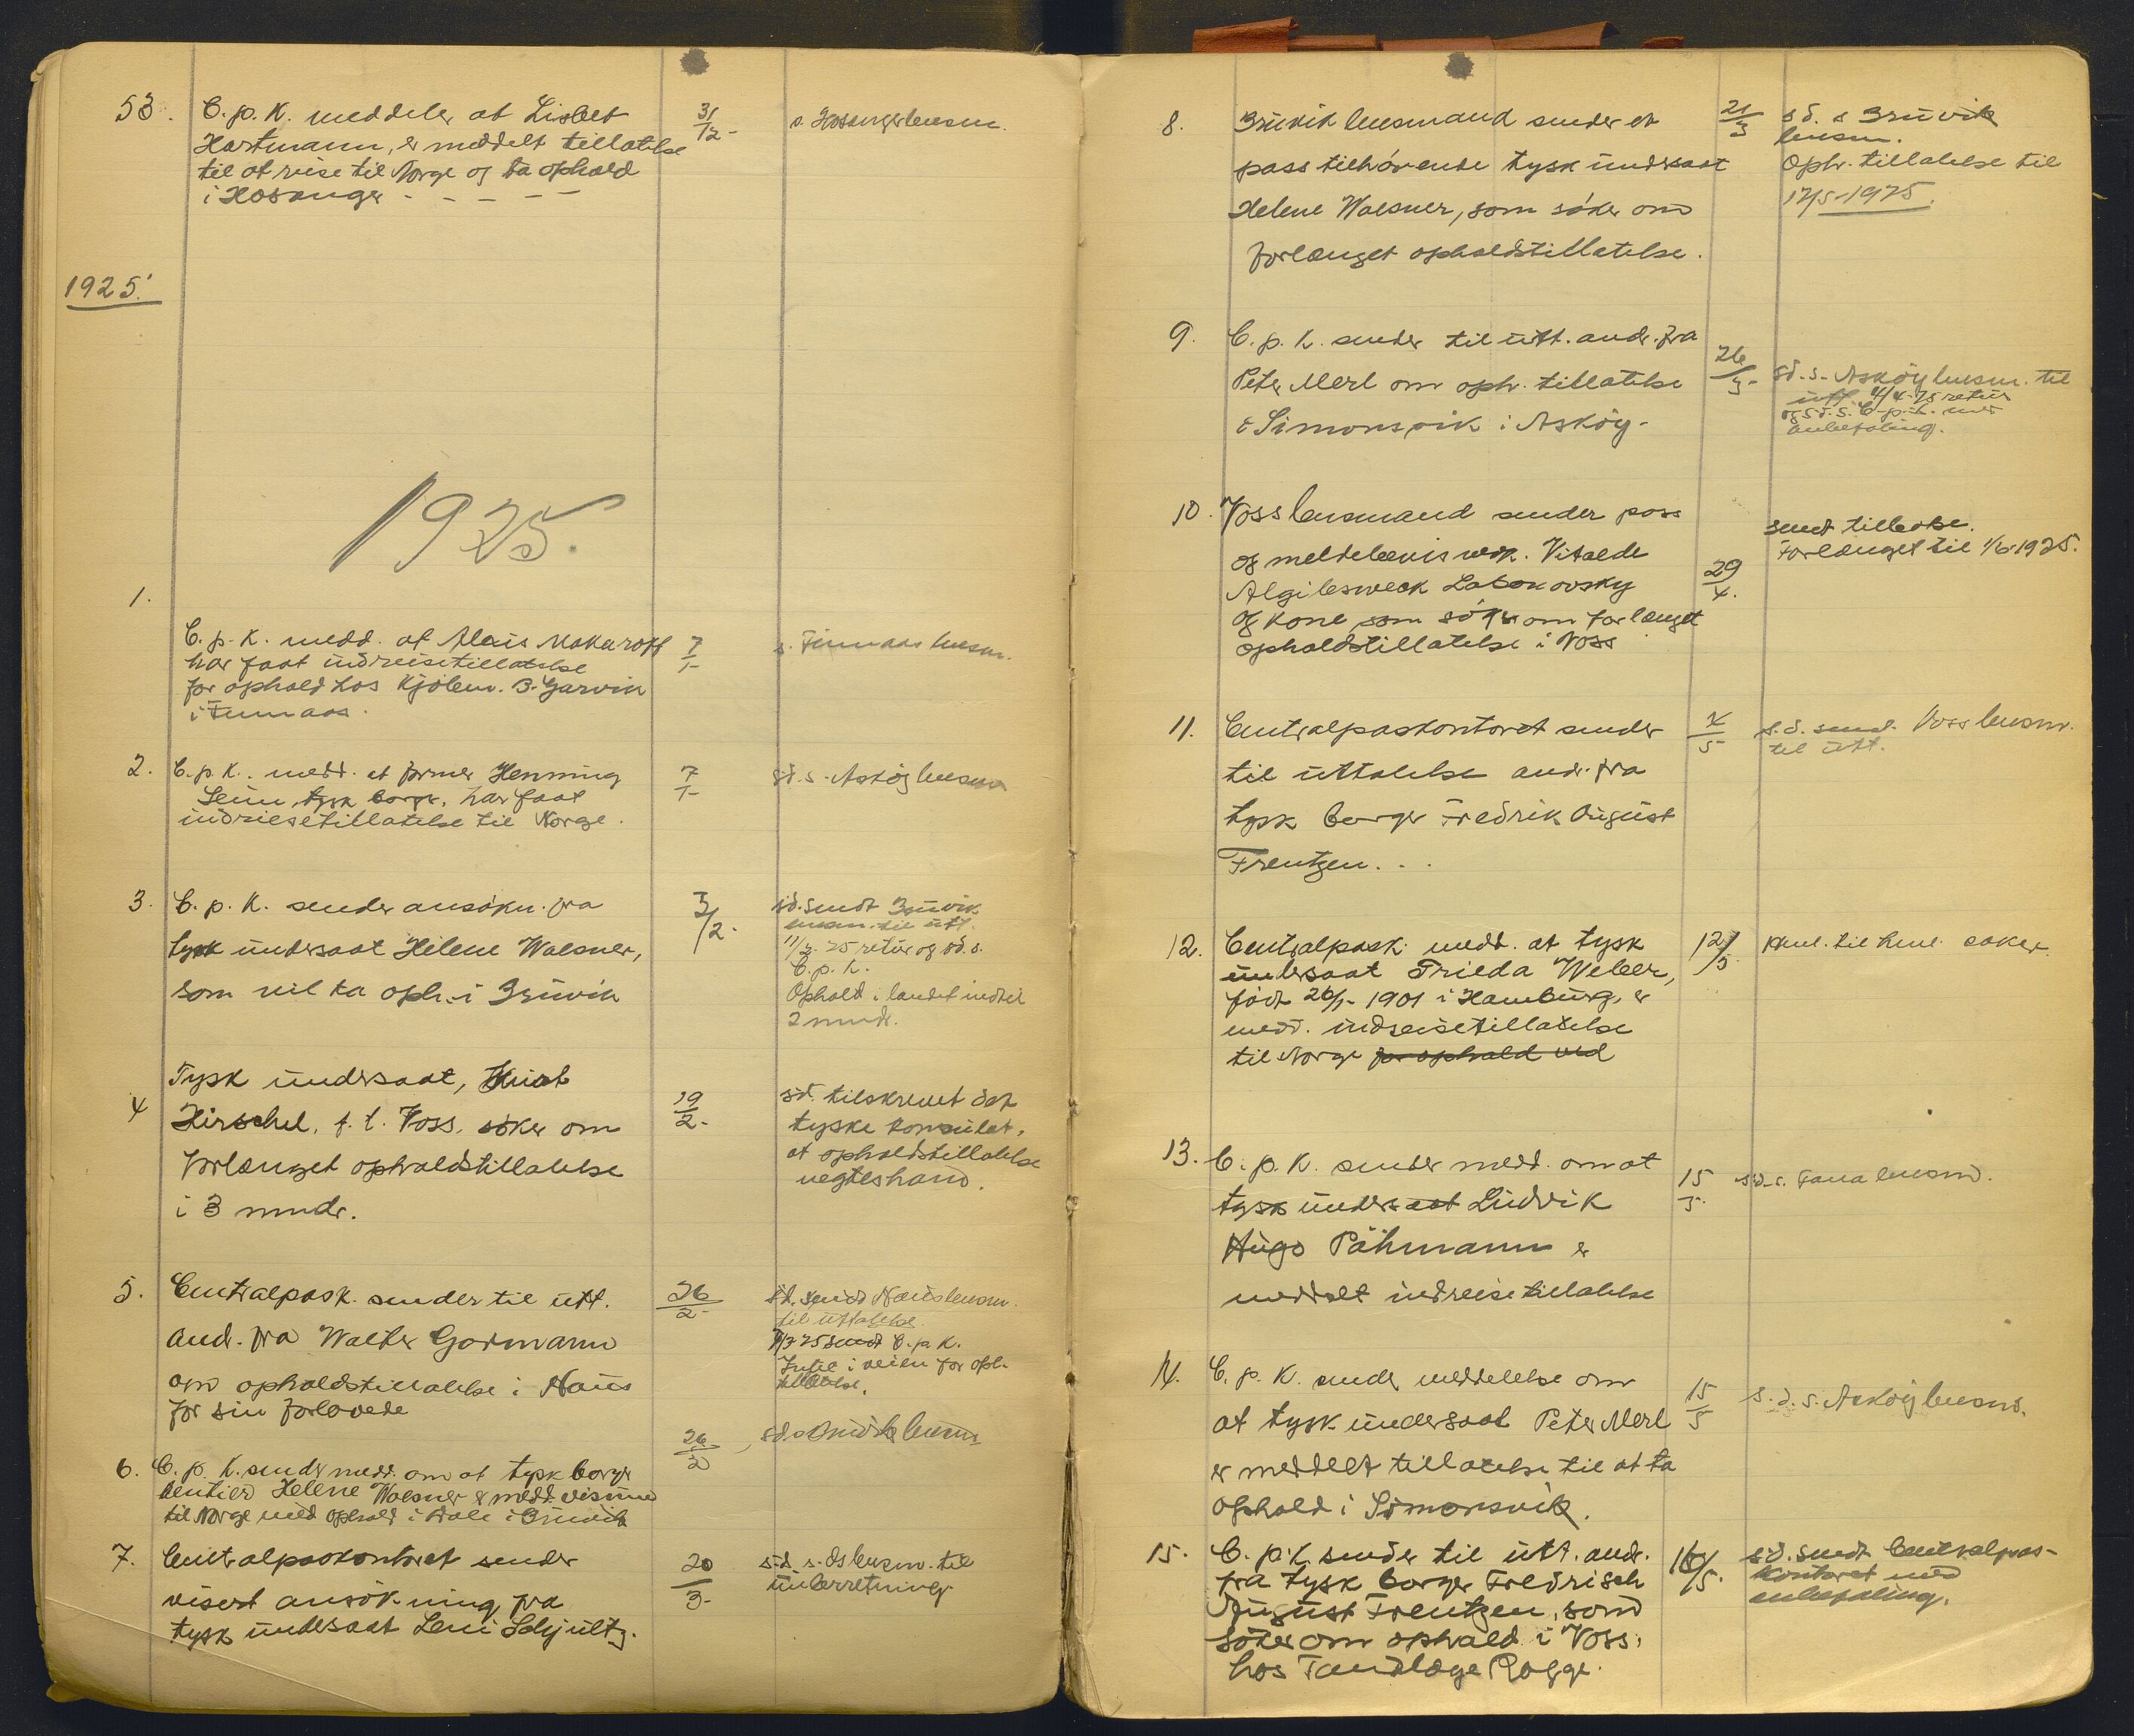 53. C. p. K. meddeler at Lisbet 31/12- s. Hosangerlensm.
Hartmann, er meddelt tillatelse
til at reise til Norge og ta ophold
i Hosanger - - - - -
1925.
1925.
1.
C. p. K. medd. at Alexis Makaroff 7/1- s. Finnaas lensm.
har faat indreisetillatelse
for ophold hos Kjøbm. B. Garvik
i Finnaas.
2. C. p. K. medd. at farmer Henning 7/1- sd. s. Askøy lensm
tysk borger, har faat
indreisetillatelse til Norge.
3. C. p. K. sender ansøkn. fra 3/2- sd. sendt Bruvik
tysk undersaat Helene Walsner, lensm. til utt.
som vil ta oph. i Bruvik 11/3-25 retur og sd. s.
C. p. K.
Ophold i landet indtil
2 mndr.
Tysk undersaat, Kurt
4 Hirschel, f. t. Voss, søker om 19/2- sd. tilskrevet det
forlænget opholdstillatelse tyske konsulat,
i 3 mndr. at opholdstillatelse
negtes ham.
5. Centralpask. sender til utt. 26/2- sd. sendt Haus lensm.
and. fra Walter Gormann til uttalelse.
om opholdstillatelse i Haus 7/3-25 sendt C. p. K.
for sin forlovede Intet i veien for oph.
tillatelse.
26/2 sd. s. Bruvik lensm
6. C. p. K. sender medd. om at tysk borger
Helene Walsner er medd. visum
til Norge med ophold i Dale i Bruvik
7. Centralpaskontoret sender 20/3- sd. s. Os lensm. til
visert ansøkning fra underretning.
tysk undersaat Leni Schjultz.
8. Bruvik lensmand sender et 21/3 sd. s. Bruvik
pass tilhørende tysk undersaat lensm.
Helene Walsner, som søker om Oph. tillatelse til
forlænget opholdstillatelse. 12/5-1925.
9. C. p. K. sender til utt. and. fra 26/3- sd. s. Askøy lensm. til
Peter Merl om oph. tillatelse utt. 4/4-25 retur
i Simonsvik i Askøy. og sd. s. C. p. K. med
anbefaling.
10. Voss lensmand sender pass sendt tilbake.
og meldebevis vedr. Vitalde Forlænget til 1/6-1925.
Labonovsky 29/4.
og kone som søker om forlænget
opholdstillatelse i Voss
11. Centralpaskontoret sender 4/5- s. d. send. Voss lensm.
til uttalelse and. fra til utt.
tysk borger Fredrik August
Frentzen. . .
12. Centralpask. medd. at tysk 12/5- henl. til henl. saker
undersaat Frieda Weber,
født 26/1- 1901 i Hamburg, er
medd. indreisetillatelse
til Norge for ophold ved
13. C. p. K. sender medd. om at 15/5- sd. s. Fana lensm.
tysk undersaat Ludvik
Hugo Pöhmann er
meddelt indreisetillatelse
14. C. p. K. sender meddelelse om 15/5 s. d. s. Askøy lensm.
at tysk undersaat Peter Merl
er meddelt tillatelse til at ta
ophold i Simonsvik.
15. C. p. K. sender til utt. and. 16/5. sd. sendt Centralpas-
fra tysk borger Fredrisch kontoret med
August Frentzen, som anbefaling.
søker om ophold i Voss,
hos Tandlæge Rogge.